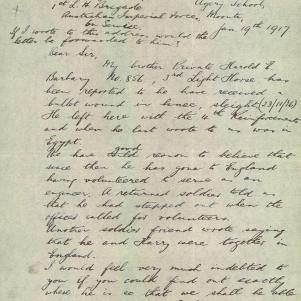 1st L. H. Brigade Agery School,
Australian Imperial Force, Moonta,
on Service Jan 19th 1917
If I wrote to this address would the
letter be forwarded to him?
Dear Sir,
My brother Private Harold E.
Barbary No. 856, 3rd Light Horse has
been reported to have received
bullet wound in knee, sleight (23/11/16)
He left here with the 4th Reinforcements
and when he last wrote to us was in
Egypt.
We have good reason to believe that
since then he has gone to England
having volunteered to serve as an
engineer. A returned soldier told us
that he had stepped out when the
officer called for volunteers.
Another soldier friend wrote saying
that he and Harry were together in
England.
I would feel very much indebted to
you if you could find out exactly
where he is so that we shall be able